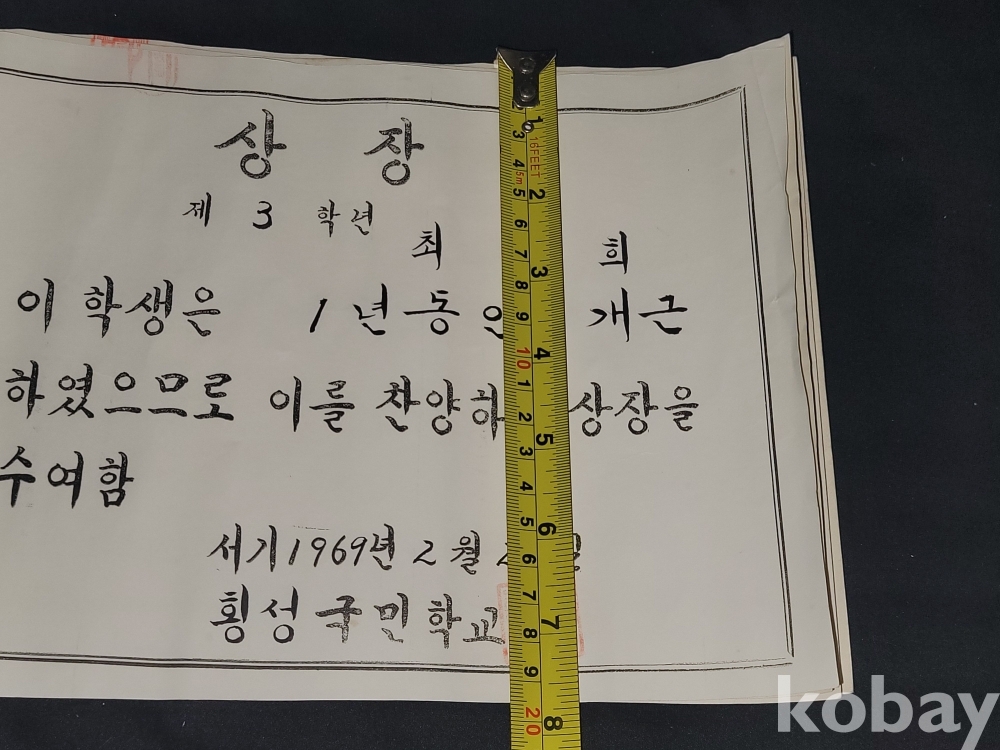 상 장
제 3 학년
최 희
이 학생은 1년동 개근
하였으므로 이를 찬양하 상장을
수여함
서기 1969년 2월
횡성국민학교
1 2 3 4 5 6 7 8
16FEET
5m
3 4 5 6 7 8 9 10 1 2 3 4 5 6 7 8 9 20
kobay